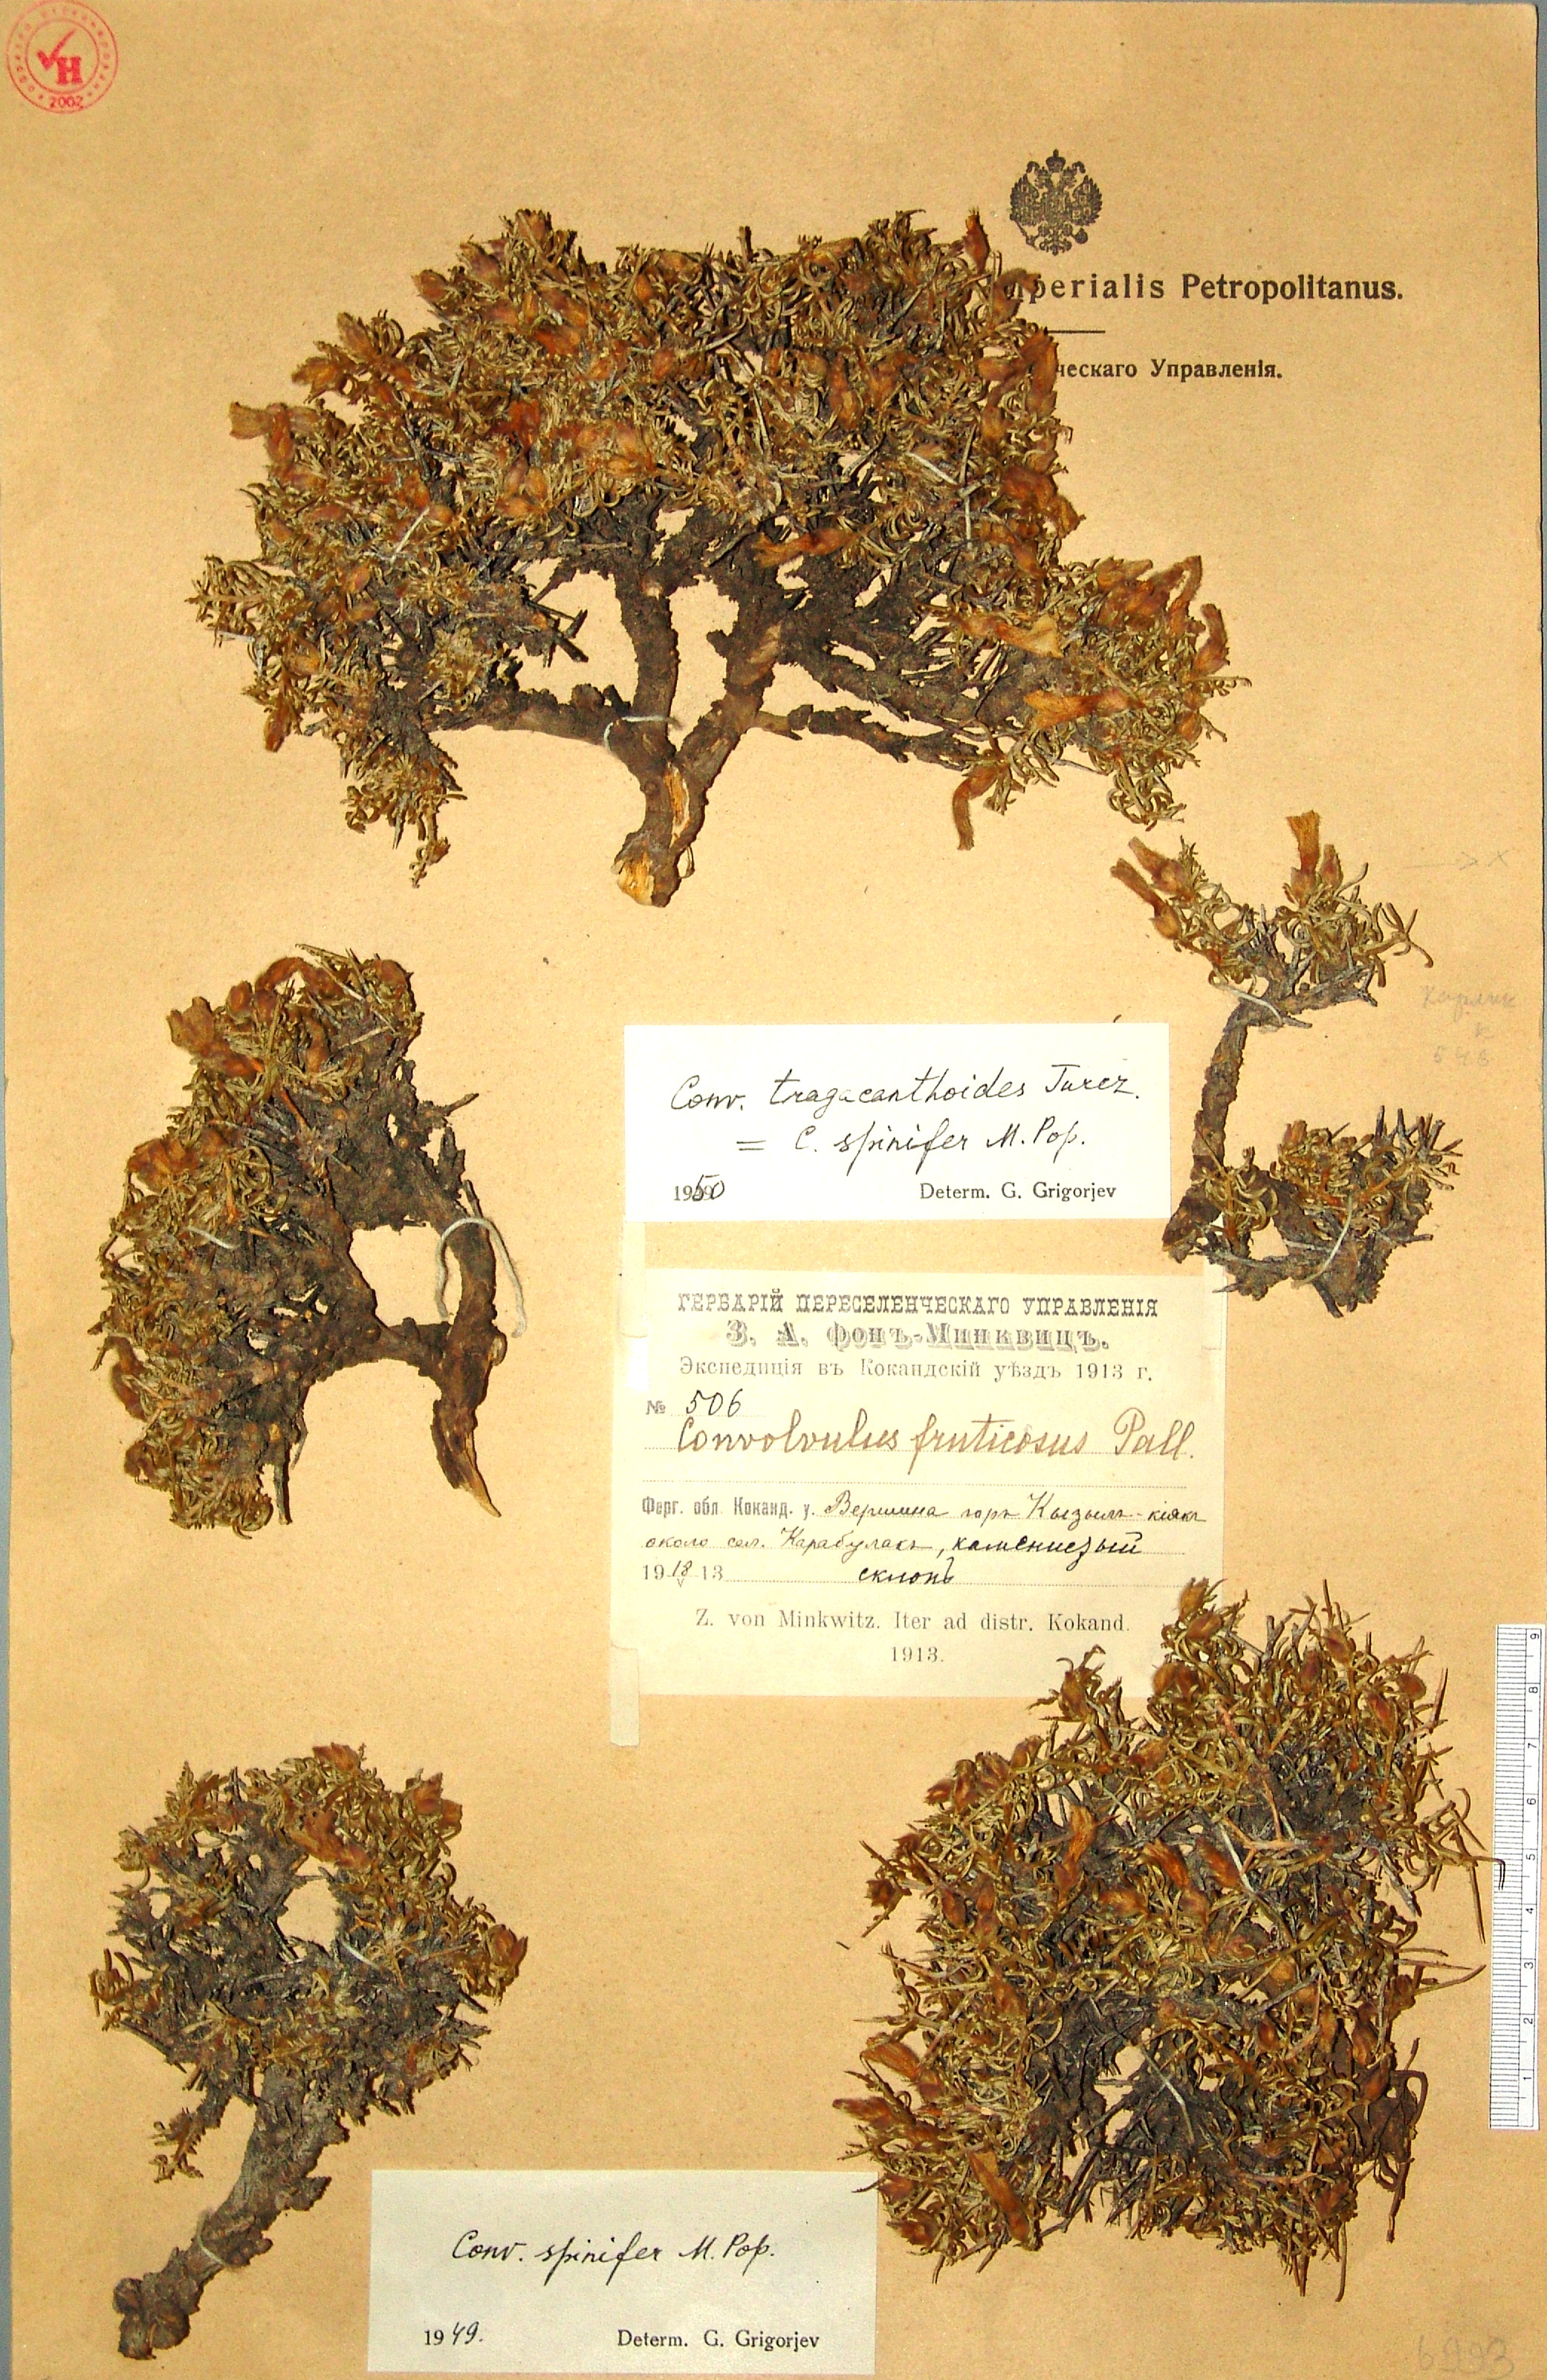 H
2002
perialis Petropolitanus.
ческаго Управленія.
Conv. tragacanthoides Turcz.
= C. spinifer M. Pop.
1950 Determ. G. Grigorjev
ГЕРБАРІЙ ПЕРЕСЕЛЕНЧЕСКАГО УПРАВЛЕНІЯ
З. А. фонъ-Минквицъ.
Экспедиція въ Кокандскій уѣздъ 1913 г.
№ 506
Convolvulus fruticosus Pall.
Ферг. обл. Коканд. у. Вершина горъ Кызылъ-кіякъ
около сел. Карабулакъ, каменистый
19 18/V 13 склонъ
Z. von Minkwitz. Iter ad distr. Kokand.
1913.
9
8
7
6
5
4
3
2
1
Conv. spinifer M. Pop.
1949. Determ. G. Grigorjev